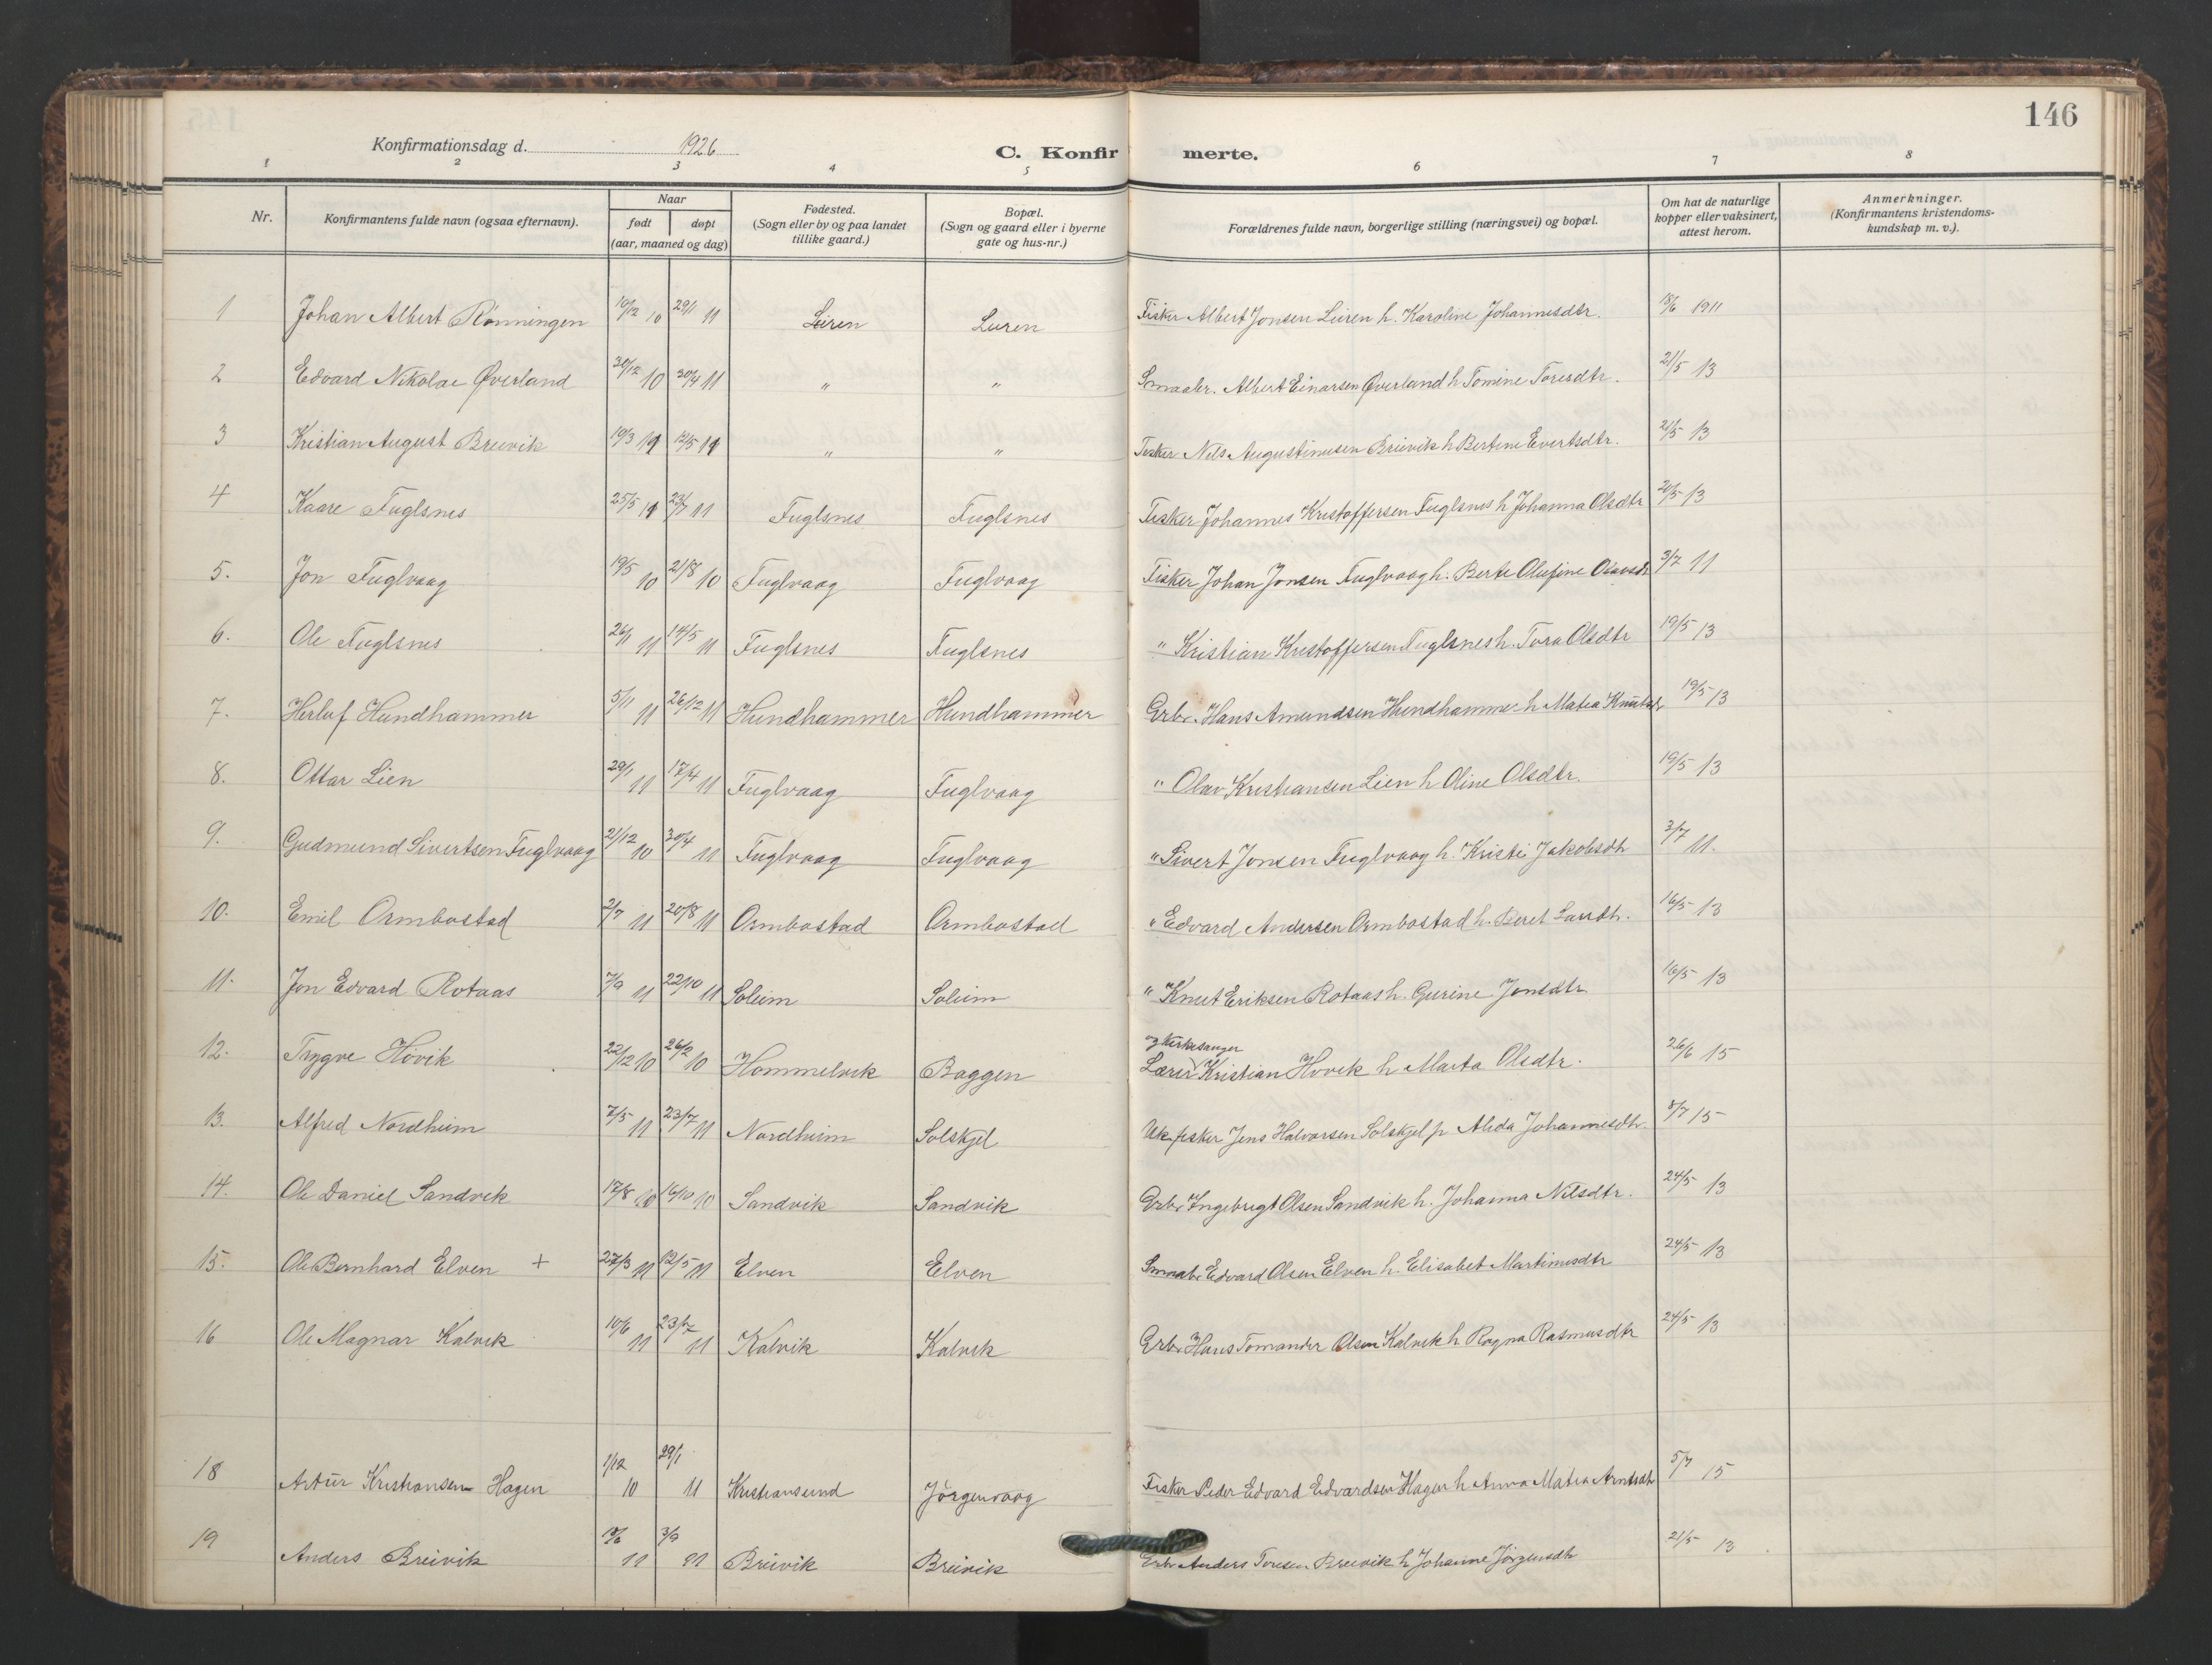 146
Konfirmationsdag d. 1926
C. Konfirmerte.
1 2 3 4 5 6 7 8
Nr.
Konfirmantens fulde navn (ogsaa efternavn).
Naar
født døpt
(aar, maaned og dag)
Fødested.
(Sogn eller by og paa landet
tillike gaard.)
Bopæl.
(Sogn og gaard eller i byerne
gate og hus-nr.)
Forældrenes fulde navn, borgerlige stilling (næringsvei) og bopæl.
Om hat de naturlige
kopper eller vaksinert,
attest herom.
Anmerkninger.
(Konfirmantens kristendoms-
kundskap m. v.).
1 Johan Albert Rönningen 19/12 10 29/1 11 Leiren Leiren Fisker Albert Jonsen Leiren h. Karoline Johannesdtr. 18/6 1911
2 Edvard Nikolai Øverland 30/12 10 30/4 11 " " Smaabr. Albert Einarsen Øverland h Tomine Toresdtr. 21/5 13
3 Kristian August Breivik 19/3 11 12/5 11 " " Fisker Nils Augustinusen Breivik h Bertine Evertsdtr. 21/5 13
4 Kaare Fuglsnes 25/5 11 23/7 11 Fuglsnes Fuglsnes Fisker Johannes Kristoffersen Fuglsnes h Johanna Olsdtr 20/5 13
5. Jon Fuglvaag 19/5 10 21/8 10 Fuglvaag Fuglvaag Fisker Johan Jonsen Fuglvaag h. Berte Olufine 3/7 11
6. Ole Fuglsnes 26/1 11 14/5 11 Fuglsnes Fuglsnes " Kristian Kristoffersen Fuglsnes h. Tora Olsdtr 19/5 13
7. Herluf Hundhammer 5/11 11 26/12 11 Hundhammer Hundhammer Grbr. Hans Amundsen Hundhammer h Matea Knutsdtr 19/5 13
8. Ottar Lien 29/1 11 17/4 11 Fuglvaag Fuglvaag " Olav Kristiansen Lien h Oline Olsdtr. 19/5 13
9. Gudmund Sivertsen Fuglvaag 21/12 10 30/4 11 Fuglvaag Fuglvaag " Sivert Jonsen Fuglvaag h. Kristi Jakobsdtr 3/7 11.
10. Emil Ormbostad 2/7 11 20/8 11 Ormbostad Ormbostad " Edvard Andersen Ormbostad h. Beret Larsdtr. 16/5 13
11. Jon Edvard Rotaas 7/9 11 22/10 11 Soleim Soleim " Knut Eriksen Rotaas h. Gurine Jonsdtr 16/5 13
og Kirkesanger
12. Trygve Hövik 22/12 10 26/2 10 Hommelvik Baggen Lærer Kristian Hovik h Marta Olsdtr. 26/6 15
13. Alfred Nordheim 7/5 11 23/7 11 Nordheim Solskjel Uk. fisker Jens Halvorsen Solskjel p Alida Johannesdtr. 8/7 15
14. Ole Daniel Sandvik 17/8 10 16/10 10 Sandvik Sandvik Grbr Ingebrigt Olsen Sandvik h. Johanna Nilsdtr. 24/5 13
15. Ole Bernhard Elven + 27/3 11 12/5 11 Elven Elven Smaabr Edvard Olsen Elven h. Elisabet Martinusdtr 24/5 13
16 Ole Magnar Kalvik 10/6 11 23/7 11 Kalvik Kalvik Grbr Hans Tomander Olsen Kalvik h Ragna Rasmusdtr 24/5 13
18 Artur Kristiansen Hagen 1/12 10 29/1 11 Kristiansund Jörgenvaag Fisker Peder Edvard Edvardsen Hagen h Anna Matea Arntsdtr 5/7 15
19 Anders Breivik 11 3/9 11 Breivik Breivik Grbr Anders Toresen Breivik h Johanne Jörgensdtr 21/5 13